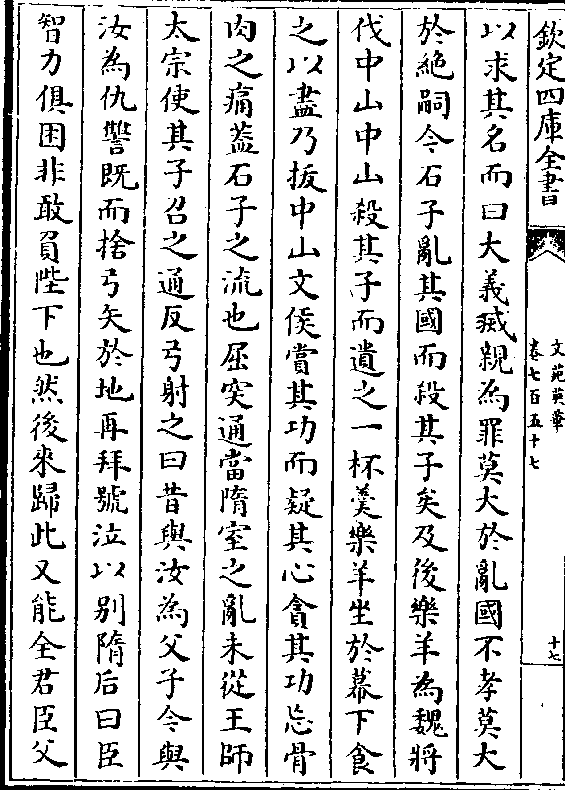 欽定四庫全書
文苑英華
卷七百五十七
十七
以求其名而曰大義滅親為罪莫大於亂國不孝莫大
於絶嗣今石子亂其國而殺其子矣及後樂羊為魏將
伐中山中山殺其子而遺之一杯羮樂羊坐於幕下食
之以盡乃拔中山文侯賞其功而疑其心貪其功忘骨
肉之痛葢石子之流也屈突通當隋室之亂未從王師
太宗使其子召之通反弓射之曰昔與汝為父子今與
汝為仇讐既而捨弓矢於地再拜號泣以别隋后曰臣
智力俱困非敢負陛下也然後來歸此又能全君臣父